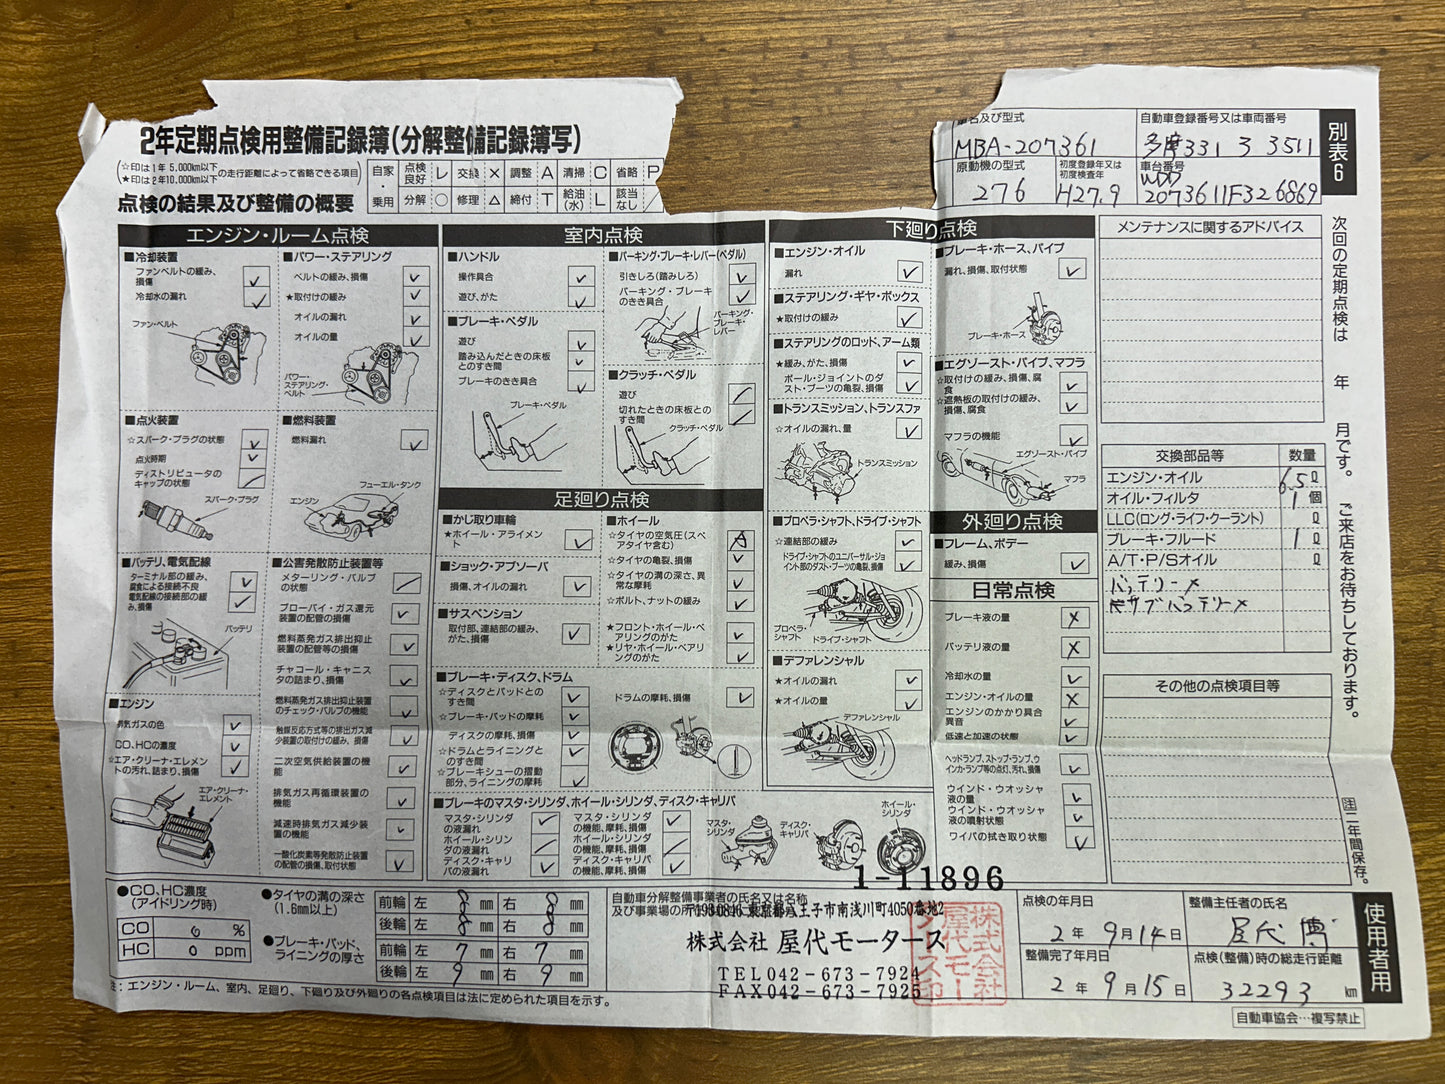 2年定期点検用整備記録簿(分解整備記録簿写)
☆印は1年 5,000km以下
★印は2年10,000km以下 の走行距離によって省略できる項目
点検の結果及び整備の概要
自家・乗用
点検良好 レ 交換 × 調整 A 清掃 C 省略 P
分解 ○ 修理 △ 締付 T 給油(水) L 該当なし ／
車名及び型式
MBA-207361
自動車登録番号又は車両番号
多摩331 ろ 3511
原動機の型式
276
初度登録年又は初度検査年
H27.9
車台番号
WDD
2073611F326869
別表6
エンジン・ルーム点検
■冷却装置
ファンベルトの緩み、損傷
冷却水の漏れ
ファン・ベルト
■パワー・ステアリング
ベルトの緩み、損傷
★取付けの緩み
オイルの漏れ
オイルの量
パワー・ステアリング・ベルト
■点火装置
☆スパーク・プラグの状態
点火時期
ディストリビュータのキャップの状態
スパーク・プラグ
■燃料装置
燃料漏れ
フューエル・タンク
エンジン
■バッテリ、電気配線
ターミナル部の緩み、腐食による接続不良
電気配線の接続部の緩み、損傷
バッテリ
■エンジン
排気ガスの色
CO、HCの濃度
☆エア・クリーナ・エレメントの汚れ、詰まり、損傷
エア・クリーナ・エレメント
■公害発散防止装置等
メターリング・バルブの状態
ブローバイ・ガス還元装置の配管の損傷
燃料蒸発ガス排出抑止装置の配管等の損傷
チャコール・キャニスタの詰まり、損傷
燃料蒸発ガス排出抑止装置のチェック・バルブの機能
触媒反応方式等の排出ガス減少装置の取付けの緩み、損傷
二次空気供給装置の機能
排気ガス再循環装置の機能
減速時排気ガス減少装置の機能
一酸化炭素等発散防止装置の配管の損傷、取付状態
室内点検
■ハンドル
操作具合
遊び、がた
■ブレーキ・ペダル
遊び
踏み込んだときの床板とのすき間
ブレーキのきき具合
ブレーキ・ペダル
■パーキング・ブレーキ・レバー(ペダル)
引きしろ(踏みしろ)
パーキング・ブレーキのきき具合
パーキング・ブレーキ・レバー
■クラッチ・ペダル
遊び
切れたときの床板とのすき間
クラッチ・ペダル
足廻り点検
■かじ取り車輪
★ホイール・アライメント
■ショック・アブソーバ
損傷、オイルの漏れ
■サスペンション
取付部、連結部の緩み、がた、損傷
■ホイール
☆タイヤの空気圧(スペアタイヤ含む) A
☆タイヤの亀裂、損傷
☆タイヤの溝の深さ、異常な摩耗
☆ボルト、ナットの緩み
★フロント・ホイール・ベアリングのがた
★リヤ・ホイール・ベアリングのがた
■ブレーキ・ディスク、ドラム
☆ディスクとパッドとのすき間
☆ブレーキ・パッドの摩耗
ディスクの摩耗、損傷
☆ドラムとライニングとのすき間
☆ブレーキシューの摺動部分、ライニングの摩耗
ドラムの摩耗、損傷
■ブレーキのマスタ・シリンダ、ホイール・シリンダ、ディスク・キャリパ
マスタ・シリンダの液漏れ
ホイール・シリンダの液漏れ
ディスク・キャリパの液漏れ
マスタ・シリンダの機能、摩耗、損傷
ホイール・シリンダの機能、摩耗、損傷
ディスク・キャリパの機能、摩耗、損傷
マスタ・シリンダ
ディスク・キャリパ
ホイール・シリンダ
下廻り点検
■エンジン・オイル
漏れ
■ステアリング・ギヤ・ボックス
★取付けの緩み
■ステアリングのロッド、アーム類
★緩み、がた、損傷
ボール・ジョイントのダスト・ブーツの亀裂、損傷
■トランスミッション、トランスファ
☆オイルの漏れ、量
トランスミッション
■プロペラ・シャフト、ドライブ・シャフト
☆連結部の緩み
ドライブ・シャフトのユニバーサル・ジョイント部のダスト・ブーツの亀裂、損傷
プロペラ・シャフト
ドライブ・シャフト
■デファレンシャル
★オイルの漏れ
★オイルの量
デファレンシャル
■ブレーキ・ホース、パイプ
漏れ、損傷、取付状態
ブレーキ・ホース
■エグゾースト・パイプ、マフラ
☆取付けの緩み、損傷、腐食
☆遮熱板の取付けの緩み、損傷、腐食
マフラの機能
エグゾースト・パイプ
マフラ
外廻り点検
■フレーム、ボデー
緩み、損傷
日常点検
ブレーキ液の量 ×
バッテリ液の量 ×
冷却水の量
エンジン・オイルの量 ×
エンジンのかかり具合 異音
低速と加速の状態
ヘッドランプ、ストップ・ランプ、ウインカ・ランプ等の点灯、汚れ、損傷
ウインド・ウオッシャ液の量
ウインド・ウオッシャ液の噴射状態
ワイパの拭き取り状態
メンテナンスに関するアドバイス
交換部品等 数量
エンジン・オイル 6.5 ℓ
オイル・フィルタ 1 個
LLC(ロング・ライフ・クーラント) ℓ
ブレーキ・フルード 1 ℓ
A/T・P/Sオイル ℓ
バッテリー×
サブバッテリー×
その他の点検項目等
次回の定期点検は 年 月です。 ご来店をお待ちしております。
注 二年間保存。
●CO、HC濃度
(アイドリング時)
CO 0 %
HC 0 ppm
●タイヤの溝の深さ
(1.6mm以上)
前輪 左 8 ㎜ 右 8 ㎜
後輪 左 8 ㎜ 右 8 ㎜
●ブレーキ・パッド、ライニングの厚さ
前輪 左 7 ㎜ 右 7 ㎜
後輪 左 9 ㎜ 右 9 ㎜
注：エンジン・ルーム、室内、足廻り、下廻り及び外廻りの各点検項目は法に定められた項目を示す。
自動車分解整備事業者の氏名又は名称
及び事業場の所
1-11896
〒193-0846 東京都八王子市南浅川町4050番地2
株式会社 屋代モータース
TEL042-673-7924
FAX042-673-7925
株式会社屋代モータース印
点検の年月日
2 年 9 月 14 日
整備完了年月日
2 年 9 月 15 日
整備主任者の氏名
屋代 博
点検(整備)時の総走行距離
32293 km
使用者用
自動車協会…複写禁止